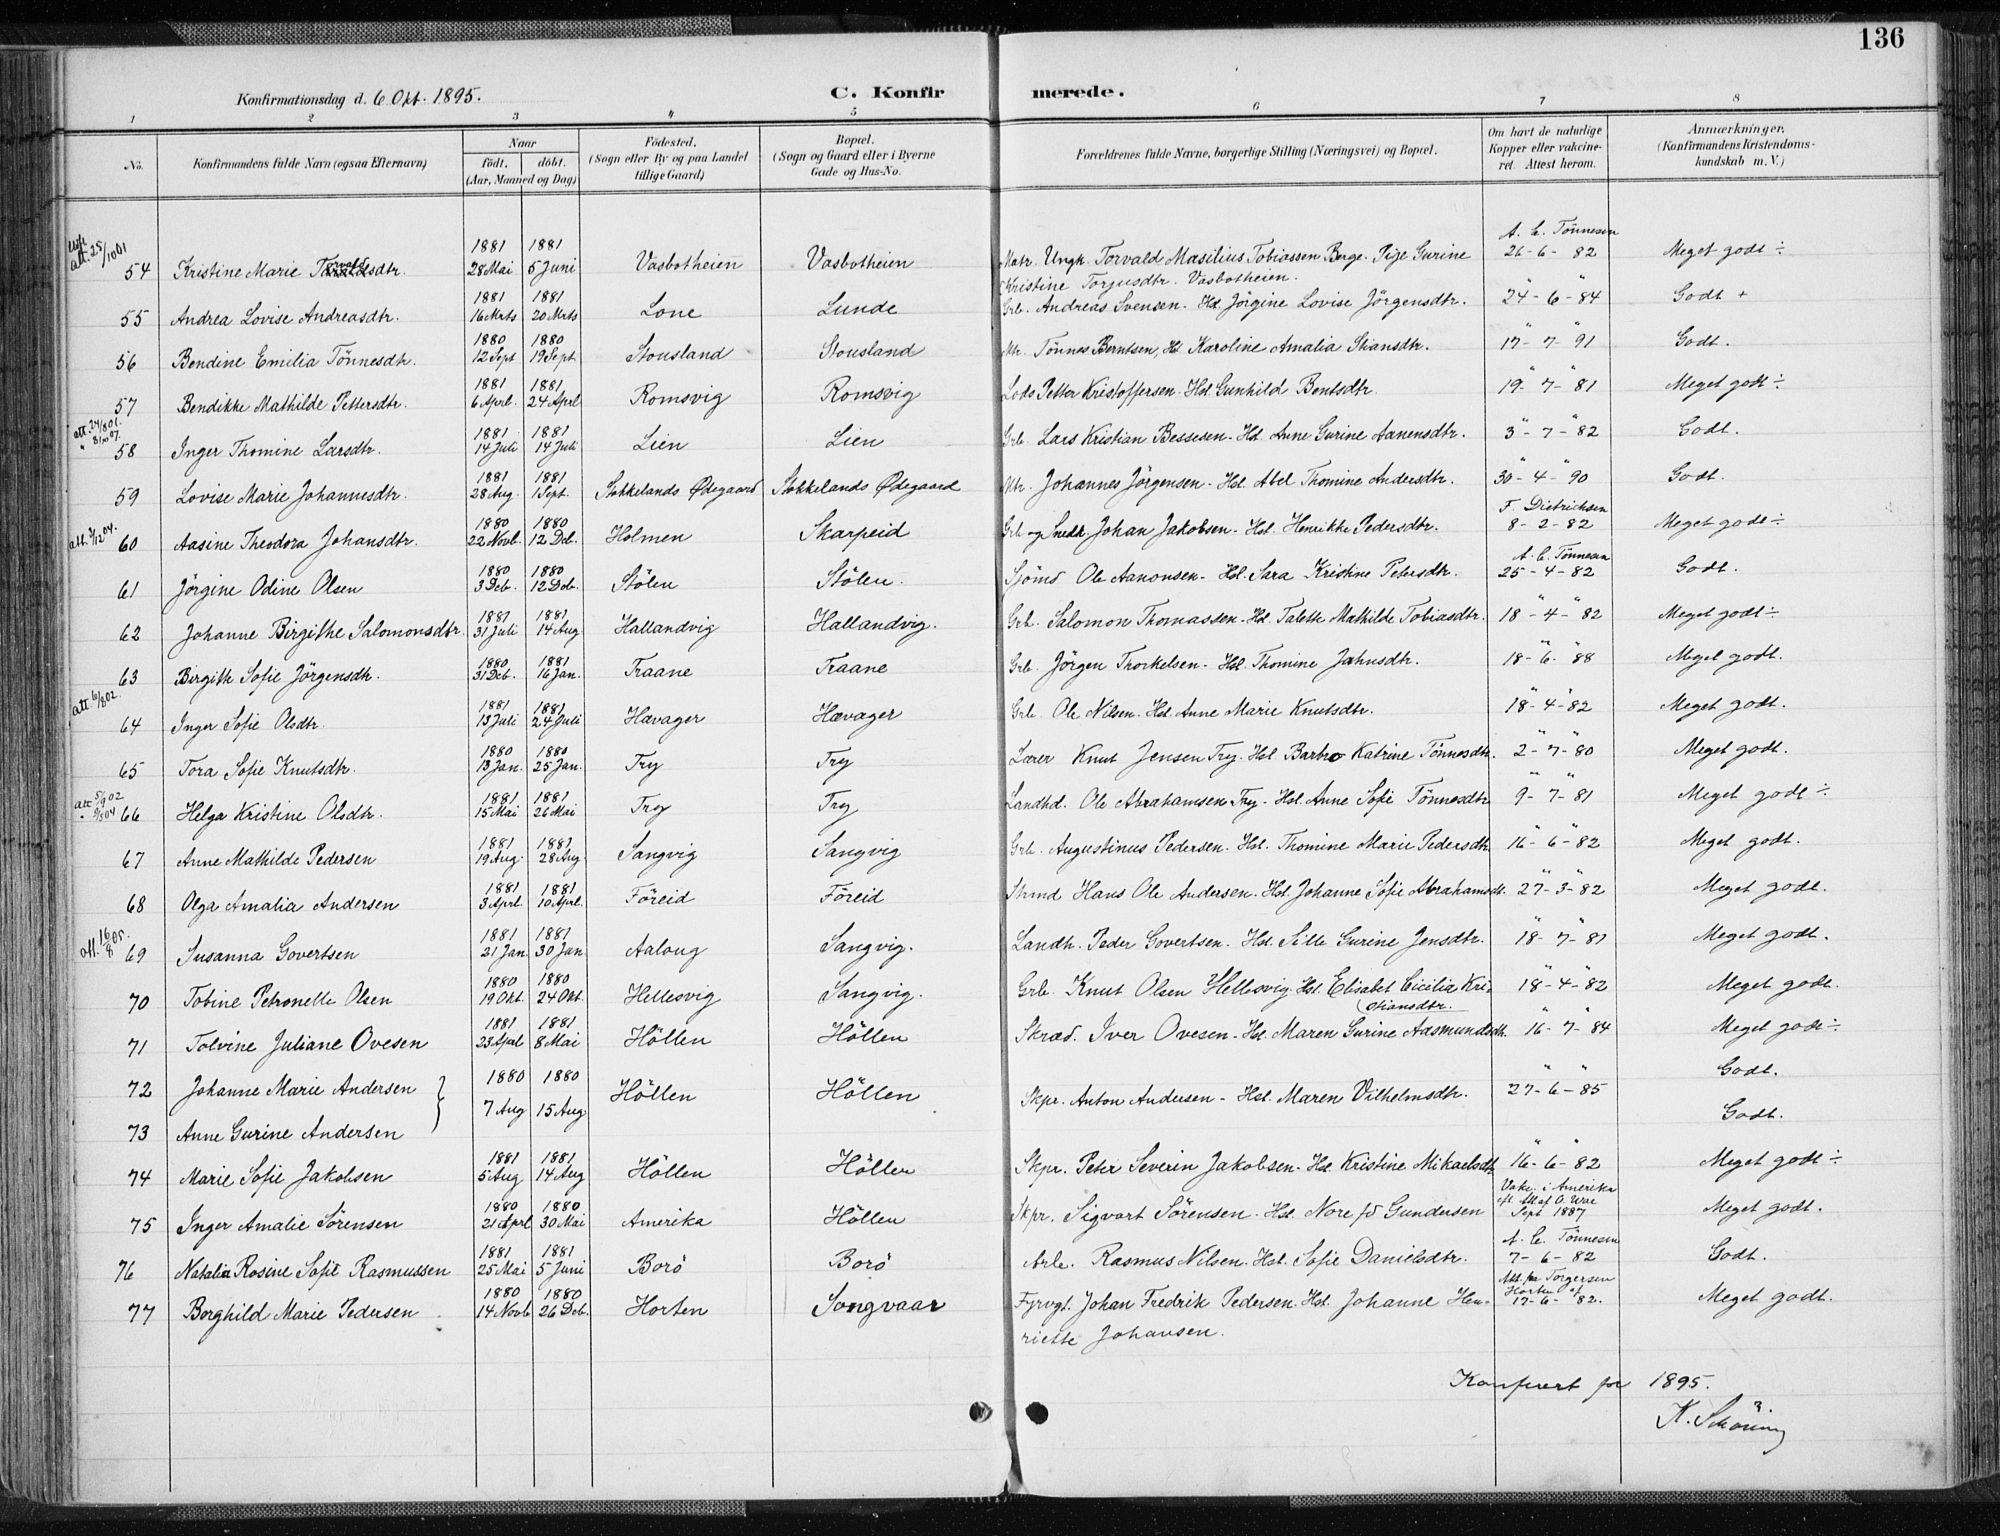 136
Konfirmationsdag d. 6 Okt. 1895.
C. Konfirmerede.
1 2 3 4 5 6 7 8
No.
Konfirmandens fulde Navn (ogsaa Efternavn)
Naar
födt. döbt.
(Aar, Maaned og Dag)
Födested.
(Sogn eller By og paa Landet
tillige Gaard)
Bopæl.
(Sogn og Gaard eller i Byerne
Gade og Hus-No.
Forældrenes fulde Navne, borgerlige Stilling (Næringsvei) og Bopæl.
Om havt de naturlige
Kopper eller vakcine-
ret. Attest herom.
Anmærkninger.
(Konfirmandens Kristendoms-
kundskab m. V.)
att. 25/10 01
54 Kristine Marie Torvaldsdtr. 1881 28 Mai 1881 5 Juni Vasbotheien Vasbotheien Matr. Ungk. Torvald Masilius Tobiassen Berge. Pige Gurine A. C. Tönnesen 26-6-82 Meget godt ÷
Kristine Torjusdtr. Vasbotheien.
55 Andrea Lovise Andreasdtr. 1881 16 Mrts 1881 20 Mrts Lone Lunde Grb. Andreas Svensen. Hst. Jörgine Lovise Jörgensdtr. " 24-6-84 Godt +
56 Bendine Emilia Tönnesdtr. 1880 12 Sept 1880 19 Sept. Stousland Stousland Mtr. Tönnes Berntsen, Hst. Karoline Amalia Stiansdtr. 17-7-91 Godt.
57 Bendikke Mathilde Pettersdtr. 1881 6 Aprl. 1881 24 Aprl Romsvig Romsvig Lods Petter Kristoffersen. Hst. Gunhild Bentsdtr. 19-7-81 Meget godt ÷
att. 24/8 06.
" 8/10 07.
58 Inger Thomine Larsdtr. 1881 14 Juli 1881 14 Juli Lien Lien Grb. Lars Kristian Bessesen. Hst. Anne Gurine Aanensdtr. 3-7-82 Godt.
59 Lovise Marie Johannesdtr. 1881 28 Aug. 1881 1 Sept. Stokkelands Ødegaard Stokkelands Ødegaard Mtr. Johannes Jörgensen - Hst. Abel Thomine Andersdtr. 30-4-90 Godt.
60 Aasine Theodora Johansdtr. 1880 22 Novb. 1880 12 Deb. Holmen Skarpeid Grb. og Snedk. Johan Jakobsen - Hst. Henrikke Pedersdtr. F. Dietrichsen 8-2-82 Meget godt ÷
61 Jörgine Odine Olsen 1880 3 Deb. 1880 12 Deb. Stölen Stölen. Sjömd Ole Aanonsen - Hst. Sara Kristine Petersdtr. A. C. Tönnesen 25-4-82 Godt.
62 Johanne Birgithe Salomonsdtr. 1881 31 Juli 1881 14 Aug Hallandvig Hallandvig. Grb. Salomon Thomassen - Hst. Talette Mathilde Tobiasdtr. 18-4-82 Meget godt ÷
63 Birgith Sofie Jörgensdtr. 1880 31 Deb. 1881 16 Jan. Traane Traane Grb. Jörgen Thorkelsen - Hst. Thomine Jahnsdtr. 18-6-88 Meget godt.
att 6/8 02.
64 Inger Sofie Olsdtr. 1881 13 Juli 1881 24 Juli Hævager Hævager Grb. Ole Nilsen. Hst. Anne Marie Knutsdtr. 18-4-82 Meget godt.
65 Tora Sofie Knutsdtr. 1880 13 Jan. 1880 25 Jan. Try Try Lærer Knut Jensen Try. Hst Barbro Katrine Tönnesdtr. 2-7-80 Meget godt.
att 5/9 02
66 Helga Kristine Olsdtr. 1881 15 Mai 1881 26 Mai Try Try Landhd. Ole Abrahamsen Try - Hst. Anne Sofie Tönnesdtr 9-7-81 Meget godt ÷
67 Anne Mathilde Pedersen 1881 19 Aug. 1881 28 Aug. Sangvig Sangvig Grb. Augustinus Pedersen. Hst. Thomine Marie Pedersdtr. 16-6-82 Meget godt.
68 Olga Amalia Andersen 1881 3 Aprl. 1881 10 Aprl. Föreid Föreid Hans Ole Andersen. Hst. Johanne Sofie Abrahamsdt. 27-3-82 Meget godt.
att. 16/8 05.
69 Susanna Govertsen 1881 21 Jan. 1881 30 Jan. Aaloug Sangvig. Landh. Peder Govertsen. Hst. Sille Gurine Jensdtr. 18-7-81 Meget godt.
70 Tobine Petronelle Olsen 1880 19 Okt. 1880 24 Okt. Hellesvig Sangvig. Grb. Knut Olsen Hellesvig. Hst. Elisabet Cicilia Kri- 18-4-82 Meget godt.
stiansdtr.
71 Tolvine Juliane Ovesen 1881 23 Aprl 1881 8 Mai Höllen Höllen Skræd. Iver Ovesen - Hst. Maren Gurine Aasmundsdtr. 16-7-84 Meget godt ÷
72 Johanne Marie Andersen 1880 1880 Godt.
7 Aug 15 Aug Höllen Höllen Skpr. Anton Andersen - Hst. Maren Vilhelmsdtr. 27-6-85
73 Anne Gurine Andersen Godt.
74 Marie Sofie Jakobsen 1881 5 Aug 1881 14 Aug Höllen Höllen Skpr. Peter Severin Jakobsen. Hst. Kristine Mikaelsdtr 16-6-82 Meget godt ÷
75 Inger Amalie Sörensen 1880 21 Aprl 1880 30 Mai Amerika Höllen Skpr. Sigvart Sörensen. Hst. Nore fd Gundersen Vakc. i Amerika Sept 1887 Meget godt.
76 Natalia Rosine Sofie Rasmussen 1881 25 Mai 1881 5 Juni Borö Borö Arb. Rasmus Nilsen. Hst. Sofie Danielsdtr. A. C. Tönnesen 7-6-82 Godt.
77 Borghild Marie Pedersen 1880 14 Novb 1880 26 Deb. Horten Songvaar Fyrvgt. Johan Fredrik Pedersen. Hst. Johanne Hen- Att. fra Torgersen Horten af 17-6-82. Meget godt.
riette Johansen.
Konfereret for 1895.
K. Schöning